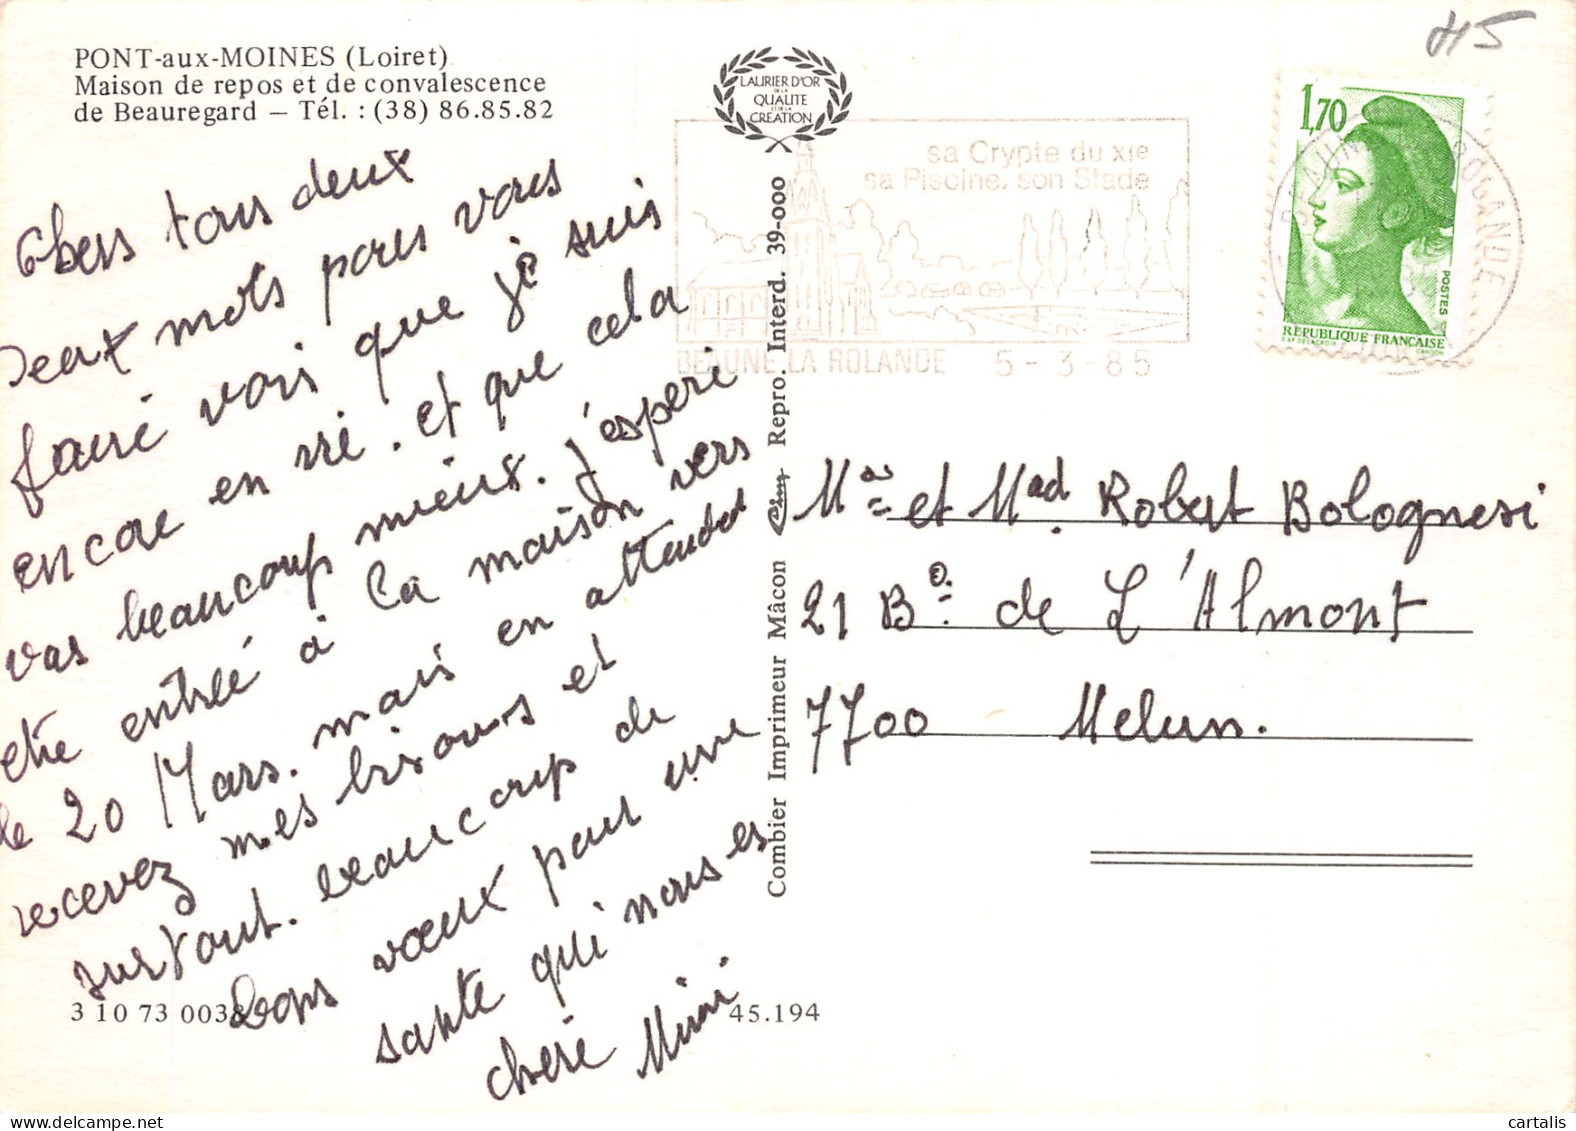 PONT-aux-MOINES (Loiret)
Maison de repos et de convalescence
de Beauregard — Tél. : (38) 86.85.82
LAURIER D'OR
DE LA
QUALITE
ET DE LA
CREATION
sa Crypte du XIe
sa Piscine, son Stade
BEAUNE LA ROLANDE 5-3-85
1,70
POSTES
REPUBLIQUE FRANÇAISE
45
Chers tous deux
Deux mots pour vous
faire voir que je suis
encore en vie. et que cela
vas beaucoup mieux. j'espere
etre entrée à la maison vers
le 20 Mars. mais en attendat
recevez mes bisous et
surtout. beaucoup de
bons voeux pour une
santé qui nous es
chere Mimi
Mr et Mad Robert Bolognesi
21 Bd de L'Almont
7700 Melun.
Combier Imprimeur Mâcon Cim Repro. Interd. 39-000
3 10 73 0038
45.194
cartalis